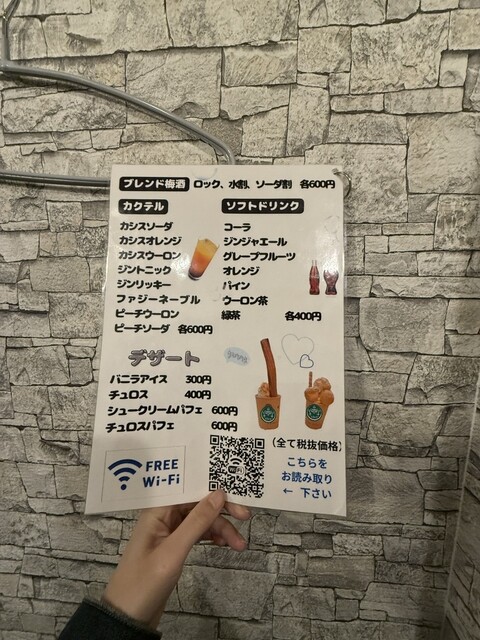 ブレンド梅酒 ロック、水割、ソーダ割 各600円
カクテル
カシスソーダ
カシスオレンジ
カシスウーロン
ジントニック
ジンリッキー
ファジーネーブル
ピーチウーロン
ピーチソーダ 各600円
ソフトドリンク
コーラ
ジンジャエール
グレープフルーツ
オレンジ
パイン
ウーロン茶
緑茶 各400円
デザート
バニラアイス 300円
チュロス 400円
シュークリームパフェ 600円
チュロスパフェ 600円
yummy
(全て税抜価格)
FREE
Wi-Fi
WiFi
こちらを
お読み取り
← 下さい